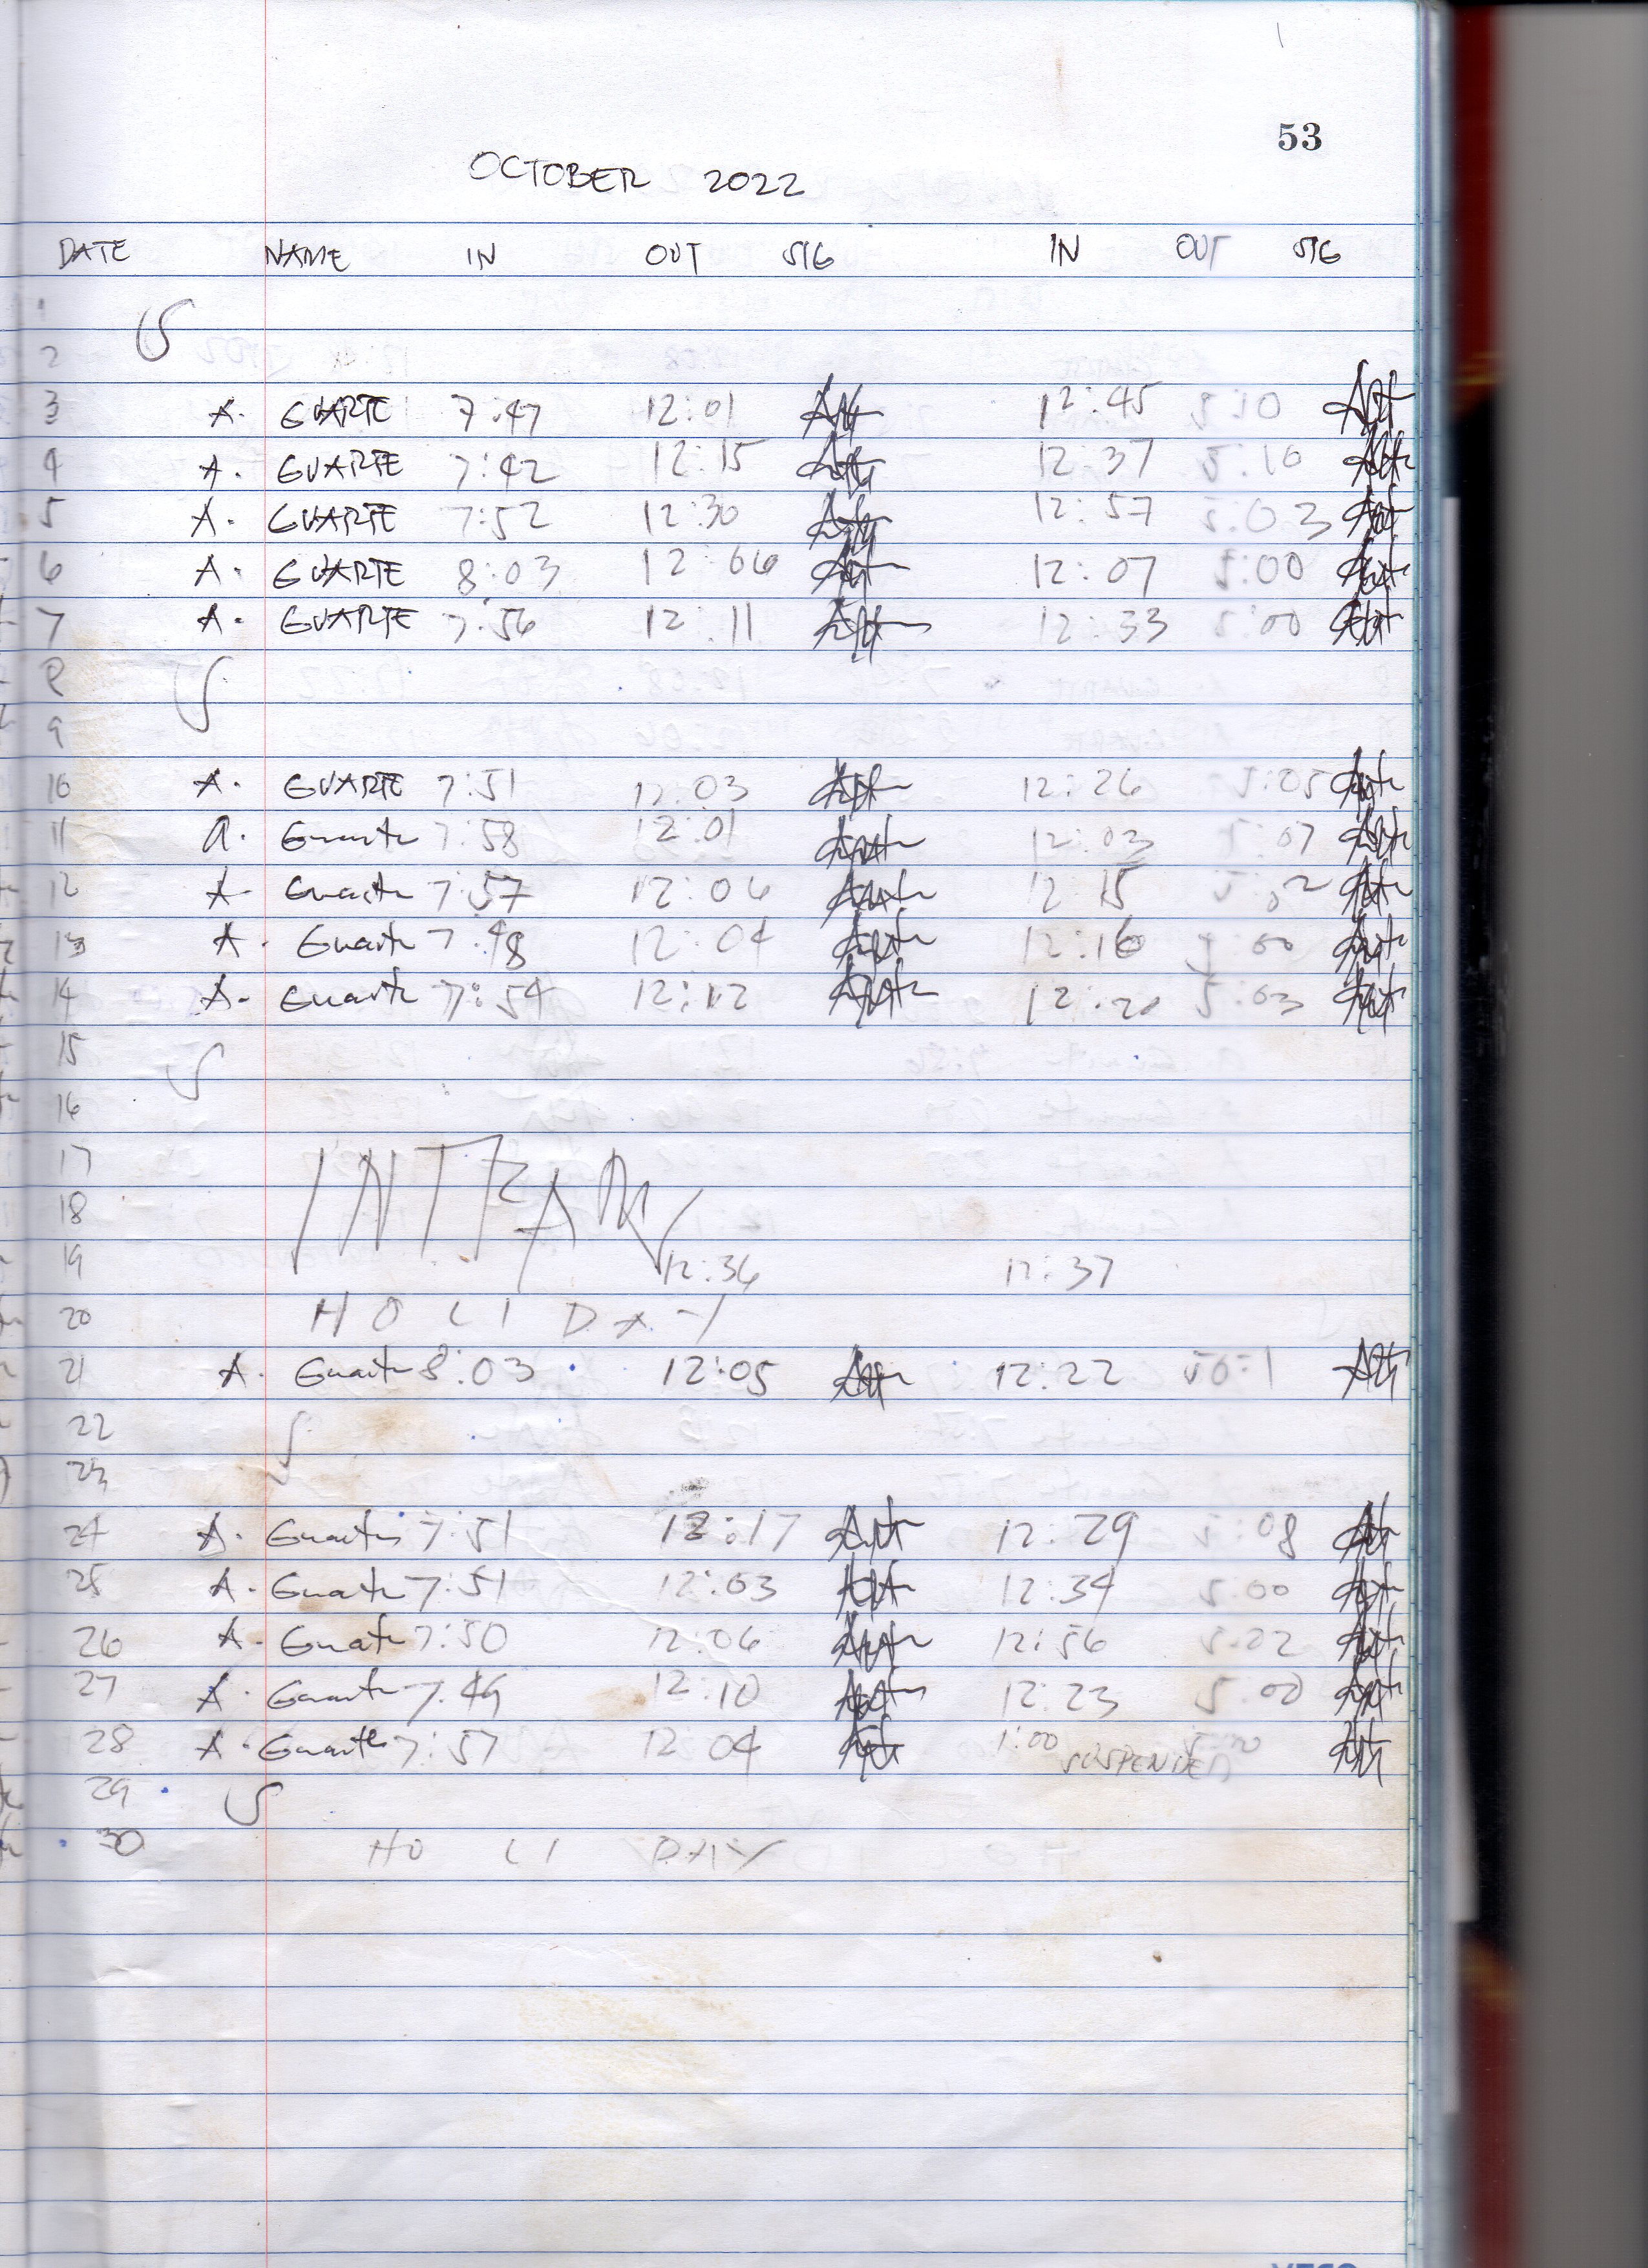 53
OCTOBER 2022
DATE NAME IN OUT SIG IN OUT SIG
1 S
2
3 A. GUARTE 7:47 12:01 12:45 5:10
4 A. GUARTE 7:42 12:15 12:37 5:10
5 A. GUARTE 7:52 12:30 12:57 5:03
6 A. GUARTE 8:03 12:06 12:07 5:00
7 A. GUARTE 7:56 12:11 12:33 5:00
8 S
9
10 A. GUARTE 7:51 12:03 12:26 5:05
11 A. Guarte 7:58 12:01 12:03 5:07
12 A. Guarte 7:57 12:06 12:15 5:02
13 A. Guarte 7:48 12:04 12:16 5:00
14 A. Guarte 7:54 12:12 12:20 5:03
15 S
16
17
18
19 12:36 12:37
20 HOLIDAY
21 A. Guarte 8:03 12:05 12:22 50:1
22 S
23
24 A. Guarte 7:51 12:17 12:29 5:08
25 A. Guarte 7:51 12:03 12:34 5:00
26 A. Guarte 7:50 12:06 12:56 5:02
27 A. Guarte 7:49 12:10 12:23 5:00
28 A. Guarte 7:57 12:04 1:00 5:00
SUSPENDED
29 S
30 HOLIDAY